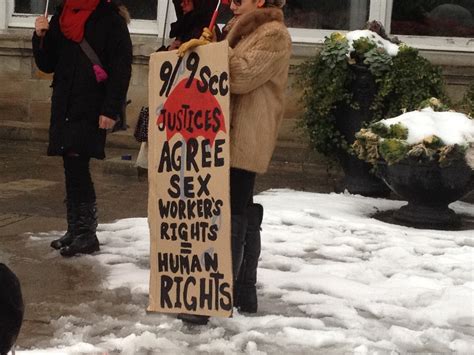 9/9 SCC
JUSTICES
AGREE
SEX
WORKER'S
RIGHTS
=
HUMAN
RIGHTS